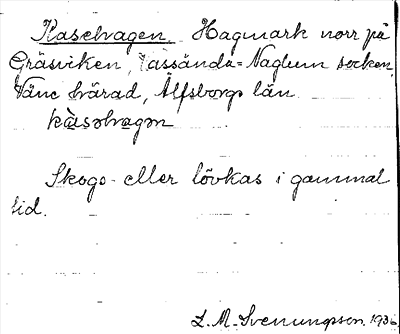 Kaselvagen Hagmark norr på
Gräsviken, Vassända-Naglum socken,
Väne härad, Älfsborgs län.
Skogs- eller lövkas i gammal
tid.
L. M. Svenungsson 1936